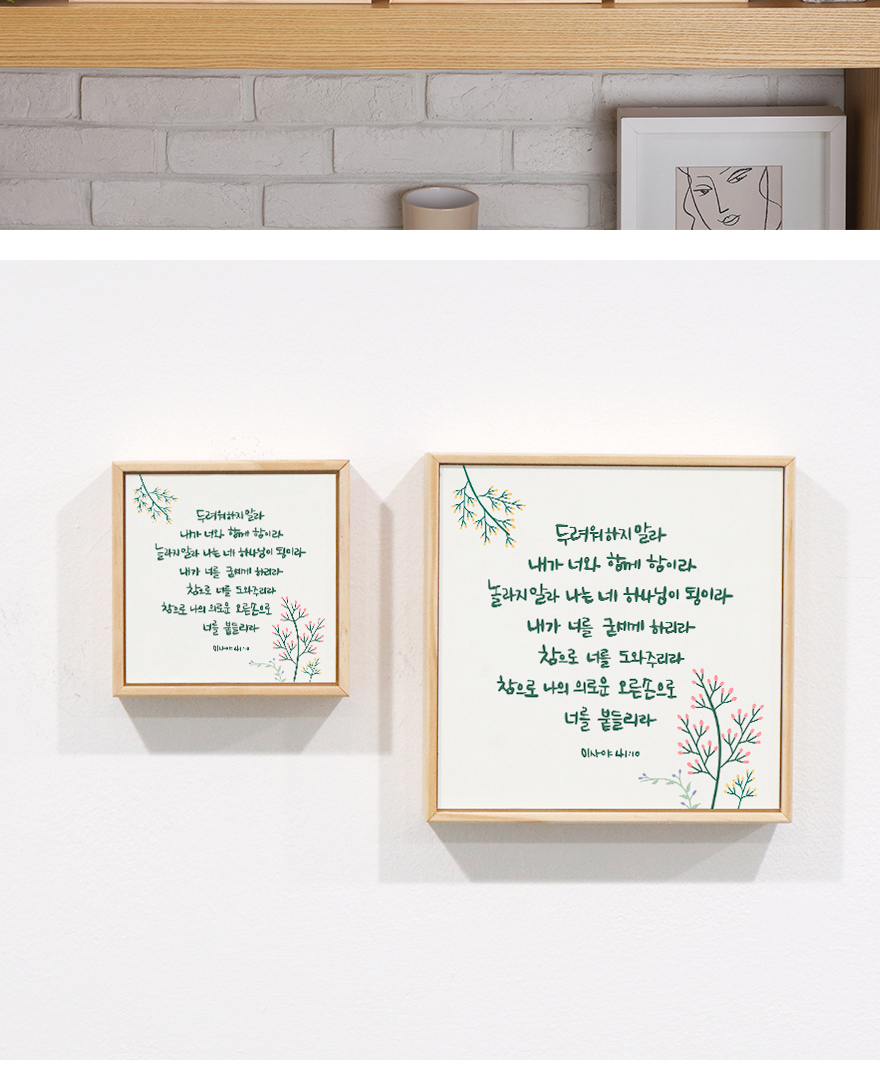 두려워하지 말라
내가 너와 함께 함이라
놀라지 말라 나는 네 하나님이 됨이라
내가 너를 굳세게 하리라
참으로 너를 도와주리라
참으로 나의 의로운 오른손으로
너를 붙들리라
이사야 41:10
두려워하지 말라
내가 너와 함께 함이라
놀라지 말라 나는 네 하나님이 됨이라
내가 너를 굳세게 하리라
참으로 너를 도와주리라
참으로 나의 의로운 오른손으로
너를 붙들리라
이사야 41:10